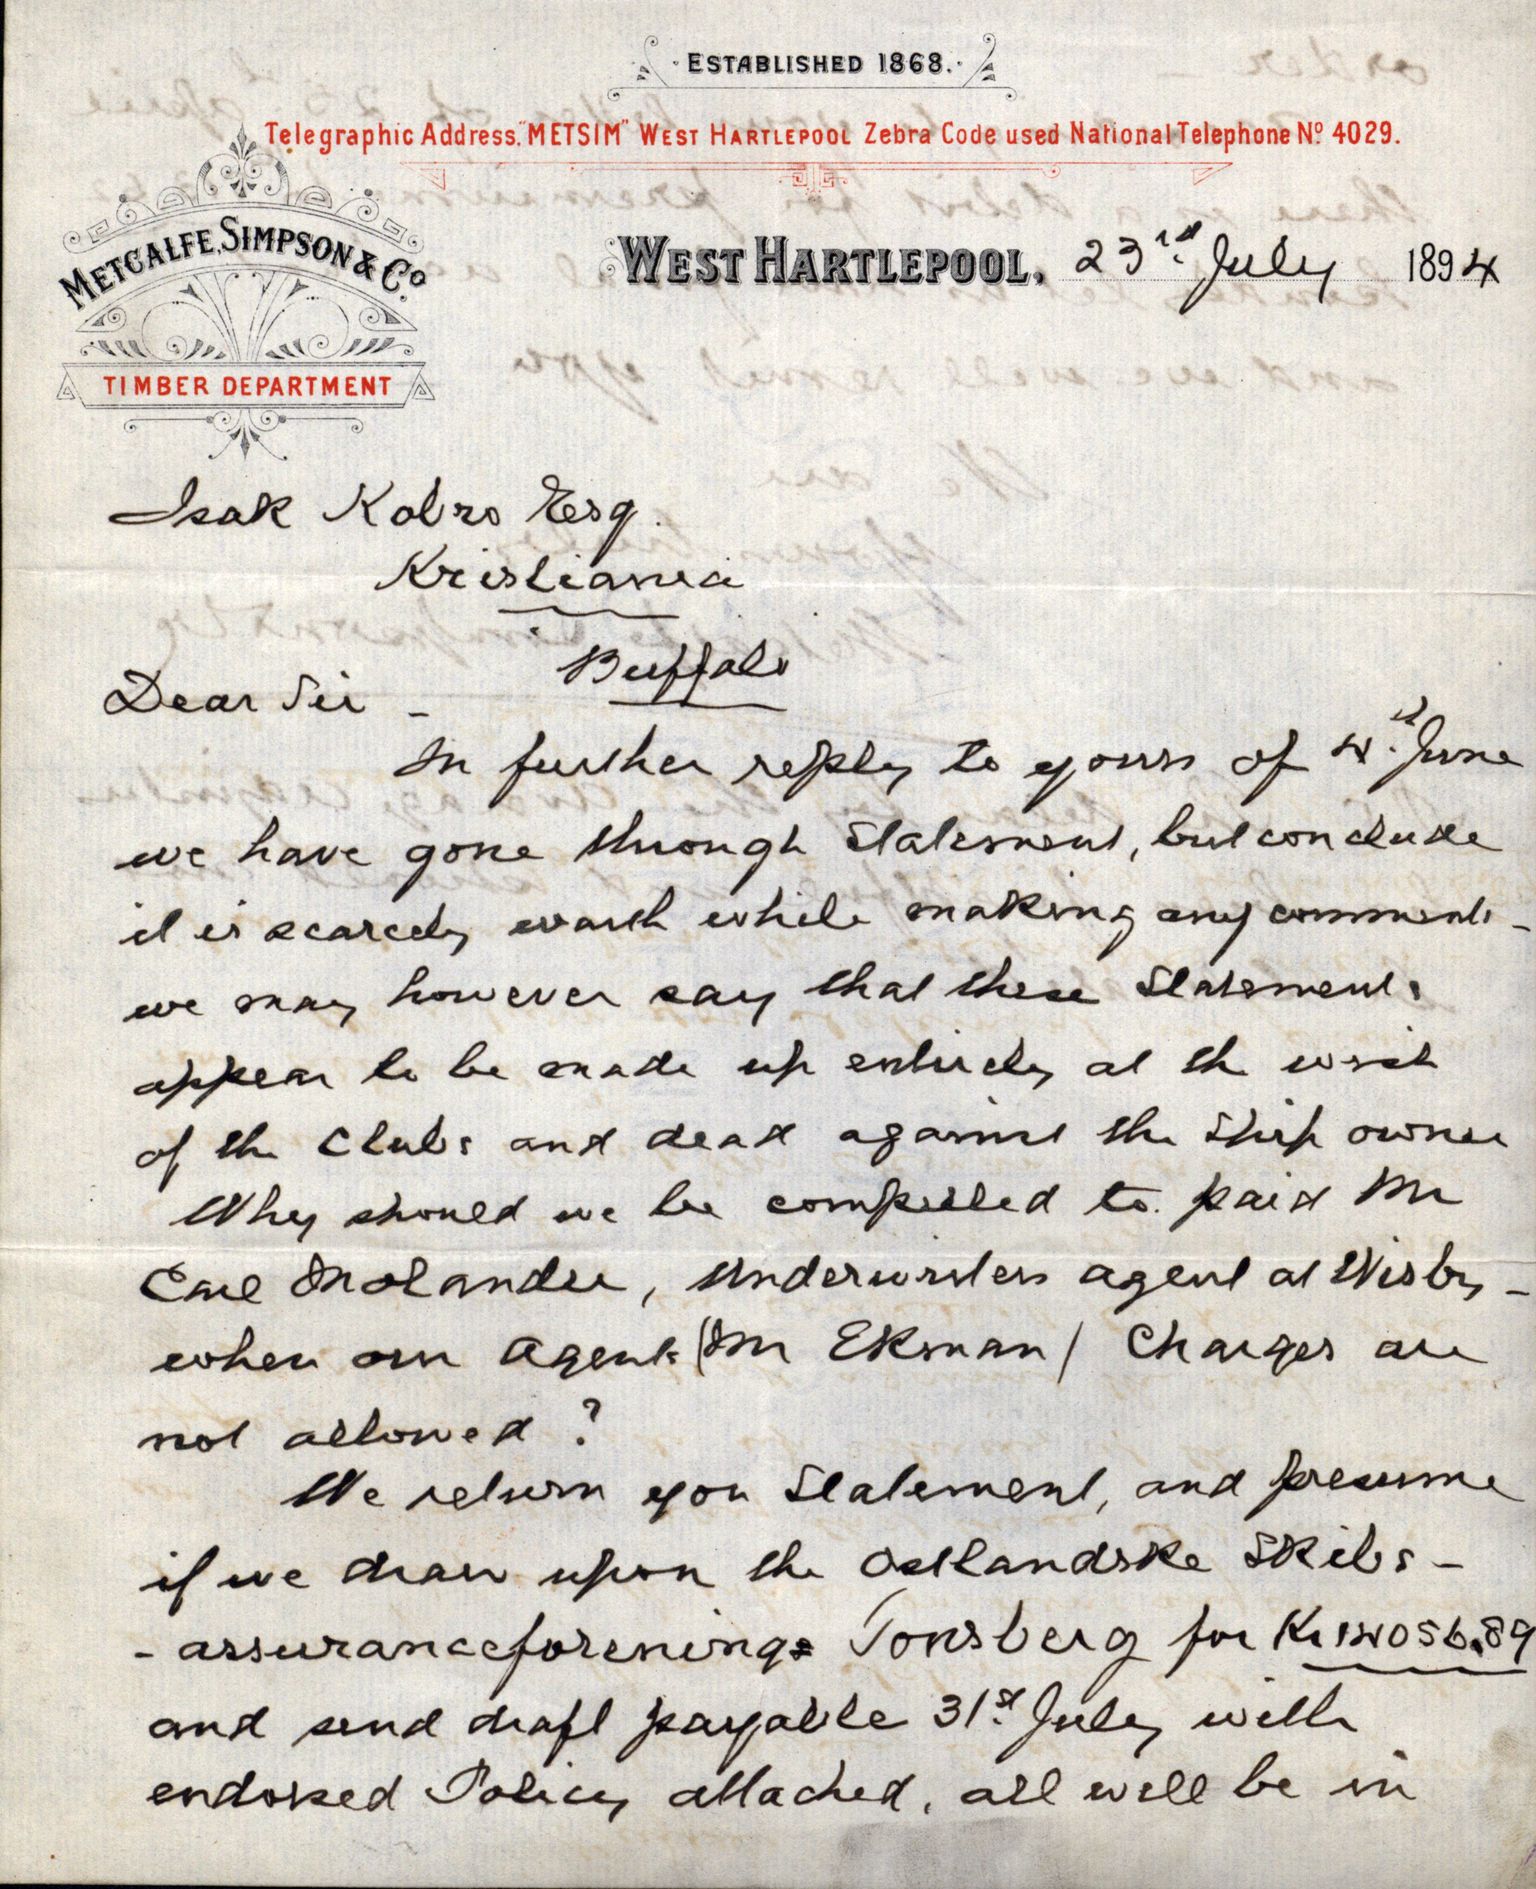 ESTABLISHED 1868.
Telegraphic Address, "METSIM" WEST HARTLEPOOL Zebra Code used National Telephone No. 4029.
METCALFE, SIMPSON & Co.
TIMBER DEPARTMENT
WEST HARTLEPOOL, 23rd July 1894
Isak Kobro Esq.
Kristiania
Buffalo
Dear Sir -
In further reply to yours of 4th June
we have gone through Statement, but conclude
it is scarcely worth while making any comments -
we may however say that these Statements
appear to be made up entirely at the wish
of the Clubs and dead against the Ship owner
Why should we be compelled to paid Mr
Carl Molander, Underwriters agent at Wisby -
when our Agents (Mr Ekman) Charges are
not allowed?
We return you Statement, and presume
if we draw upon the Ostlandske Skibs -
- assuranceforening Tonsberg for Kr 14056.89
and send draft payable 31st July with
endorsed Policy attached, all will be in